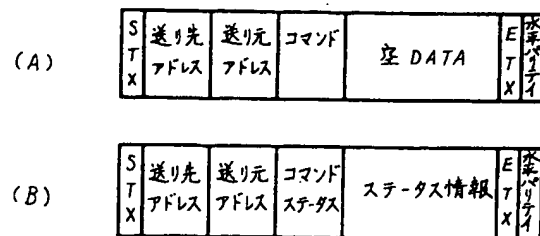 (A)
STX
送り先
アドレス
送り元
アドレス
コマンド
空 DATA
ETX
水平パリティ
(B)
STX
送り先
アドレス
送り元
アドレス
コマンド
ステータス
ステータス情報
ETX
水平パリティ